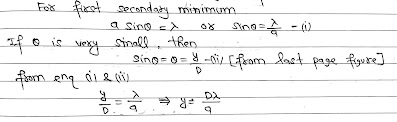 For first secondary minimum
a sinθ = λ or sinθ = λ/a - (i)
If θ is very small, then
sinθ = θ = y/D - (ii) [from last page figure]
from enq (i) & (ii)
y/D = λ/a ⇒ y = Dλ/a